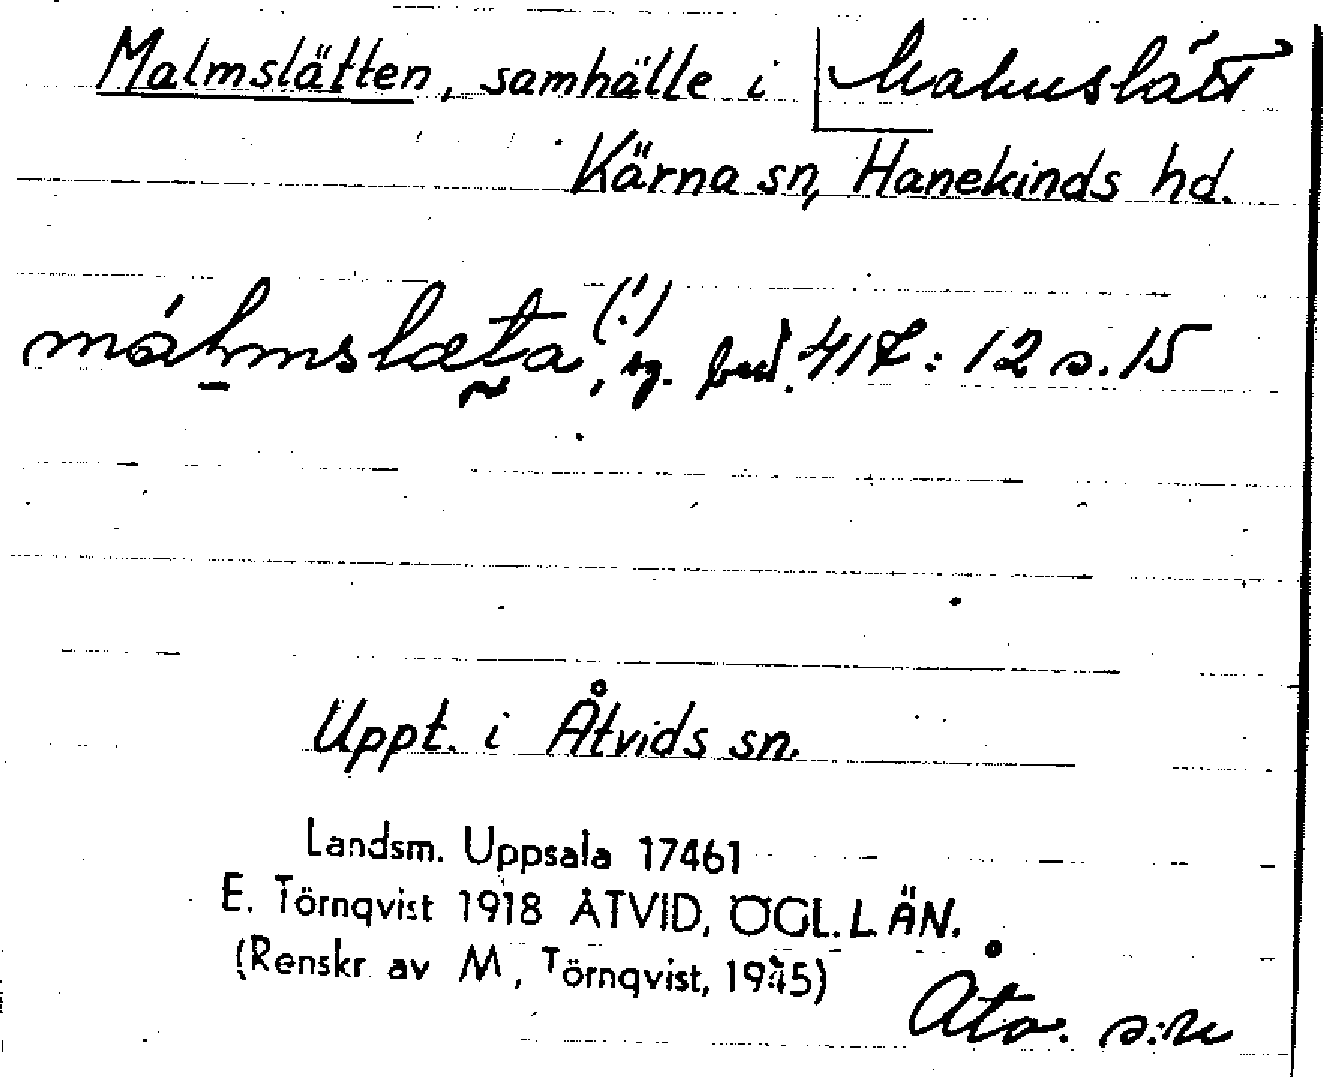 Malmslätten, samhälle i Malmslätt
Kärna sn, Hanekinds hd.
málmslæta (!), sg. best. 417: 12 s. 15
Uppt. i Åtvids sn.
Landsm. Uppsala 17461
E. Törnqvist 1918 ÅTVID, ÖGL. LÄN.
(Renskr. av M. Törnqvist, 1945)
Åtv. s:n